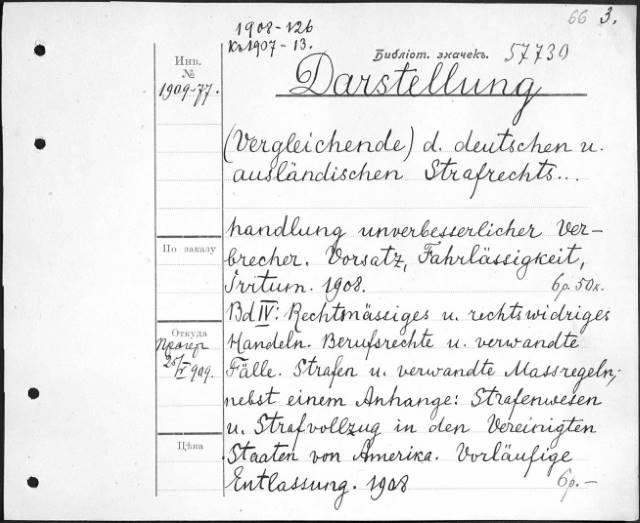 1908-126
66 3.
K 1907-13.
Инв.
№
1909-77.
Библіот. значекъ. 57739
Darstellung
(Vergleichende) d. deutschen u.
ausländischen Strafrechts...
handlung unverbesserlicher Ver-
brecher. Vorsatz, Fahrlässigkeit,
Irrtum. 1908. 6р. 50к.
По заказу
Bd IV: Rechtmässiges u. rechtswidriges
Handeln. Berufsrechte u. verwandte
Fälle. Strafen u. verwandte Massregeln,
nebst einem Anhange: Strafenwesen
u. Strafvollzug in den Vereinigten
Staaten von Amerika. Vorläufige
Entlassung. 1908 6р.-
Откуда
909.
Цѣна